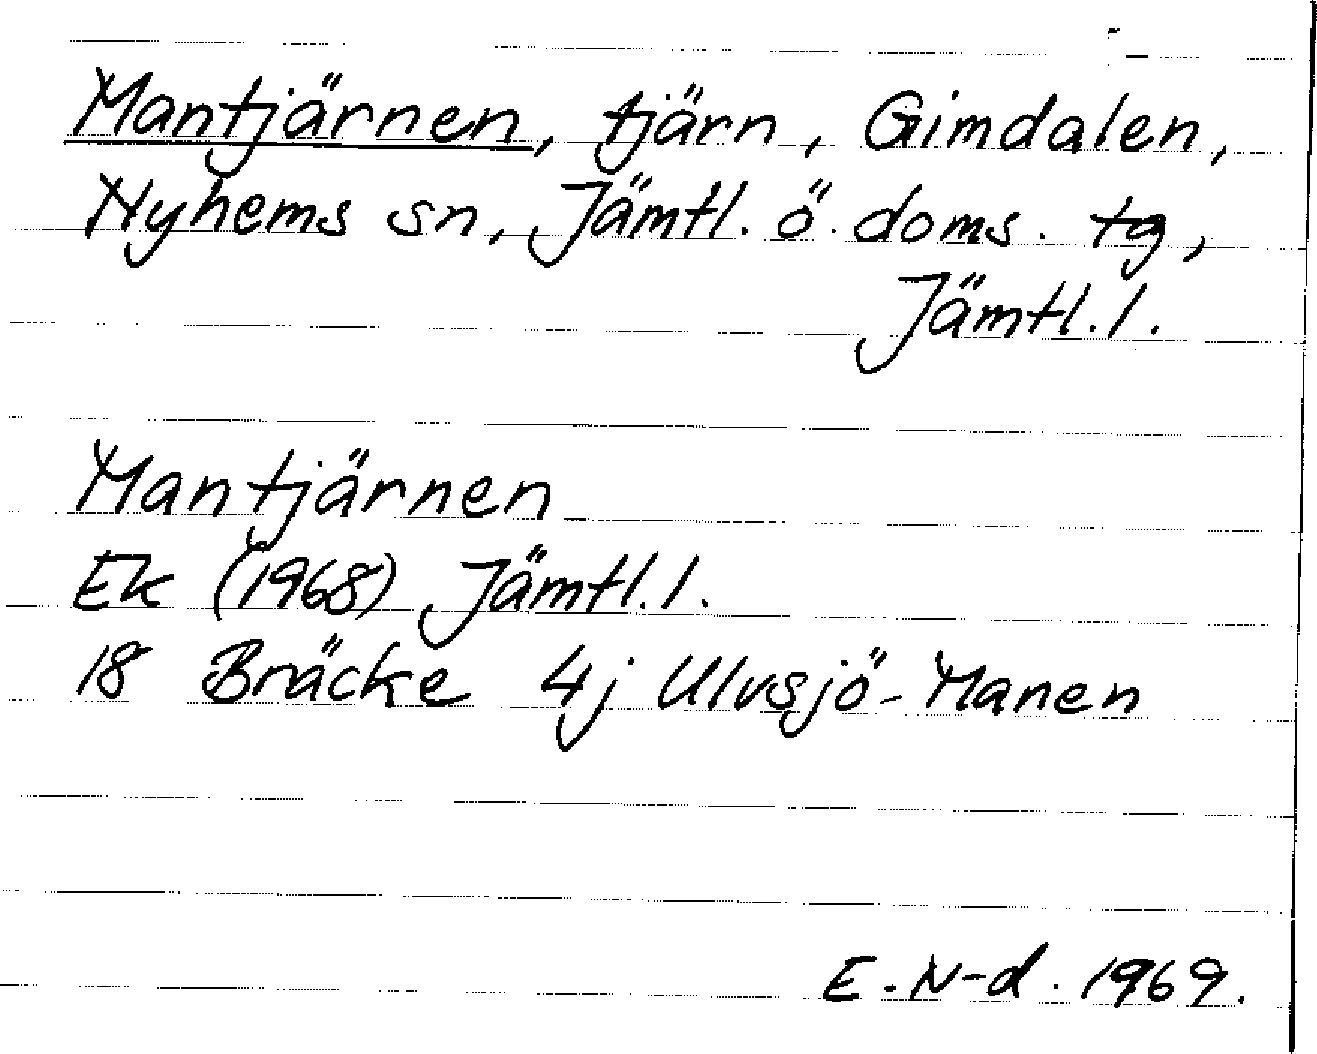 Mantjärnen, tjärn, Gimdalen,
Nyhems sn, Jämtl. ö. doms. tg,
Jämtl. l.
Mantjärnen
Ek (1968) Jämtl. l.
18 Bräcke 4j Ulvsjö-Manen
E. N-d. 1969.